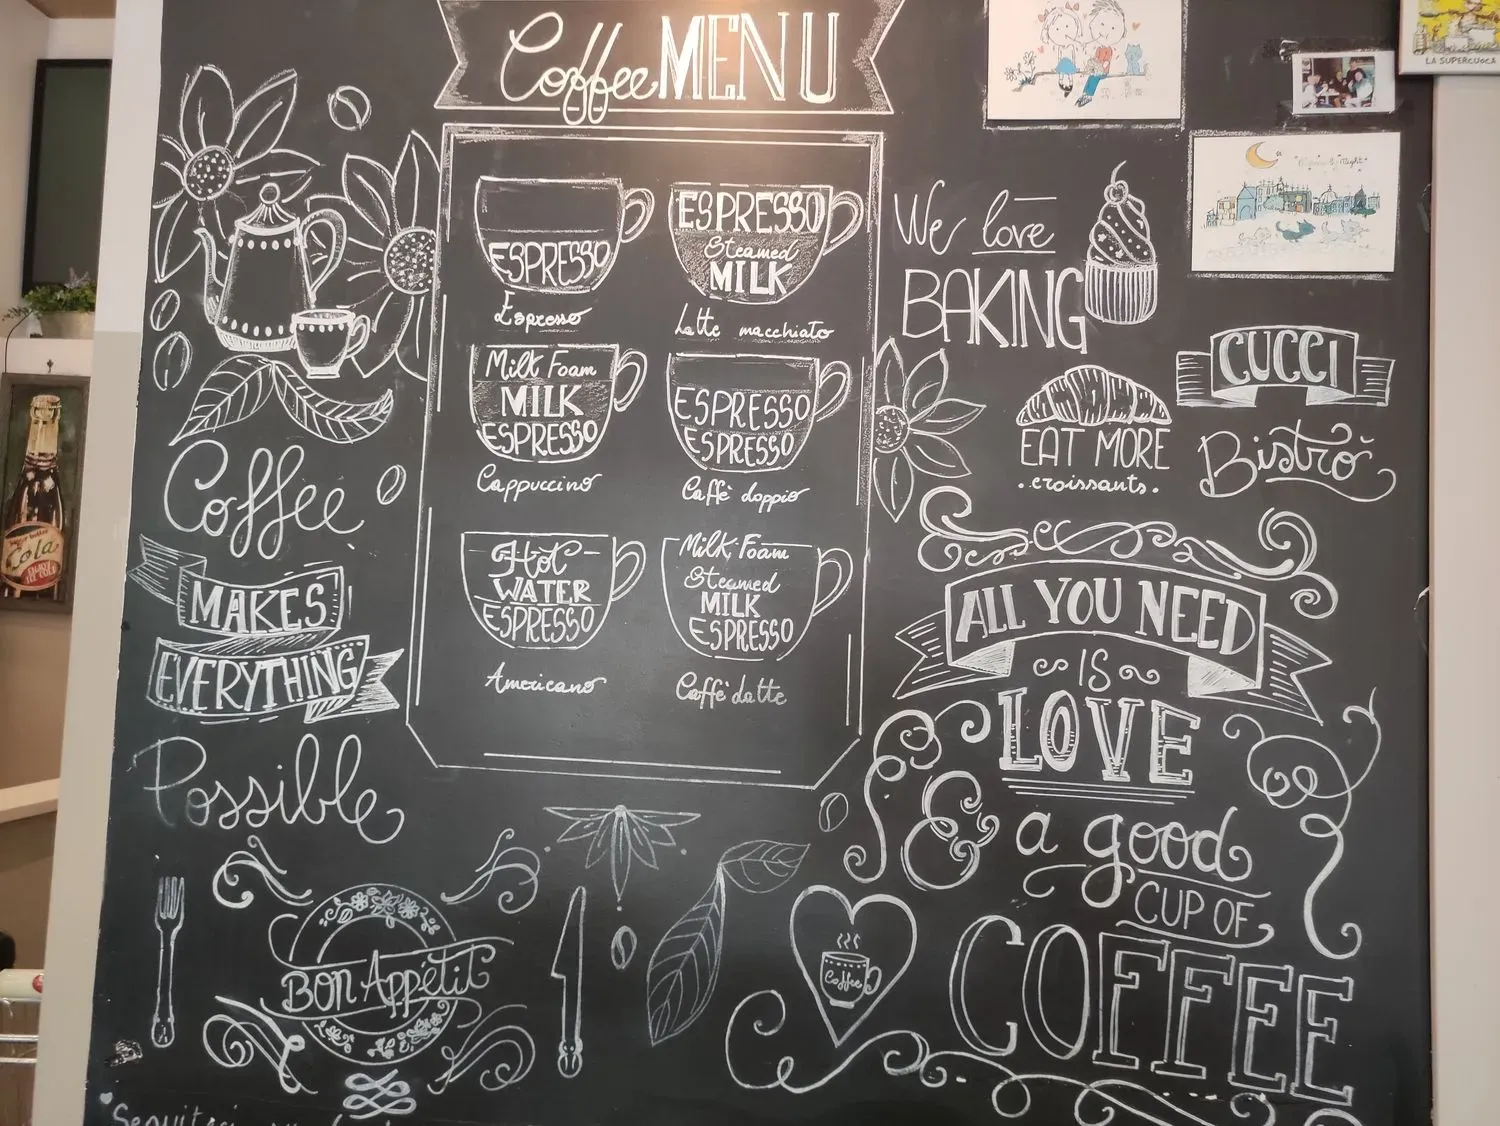 Coffee MENU
ESPRESSO
Espresso
ESPRESSO
Steamed
MILK
Latte macchiato
Milk Foam
MILK
ESPRESSO
Cappuccino
ESPRESSO
ESPRESSO
Caffè doppio
Hot
WATER
ESPRESSO
Americano
Milk Foam
Steamed
MILK
ESPRESSO
Caffè latte
Coffee
MAKES
EVERYTHING
Possible
BON Appétit
Seguiteci
We love
BAKING
EAT MORE
croissants
CUCCI
Bistrò
ALL YOU NEED
IS
LOVE
& a good
CUP OF
COFFEE
Coffee
LA SUPERCUOCA
Cola